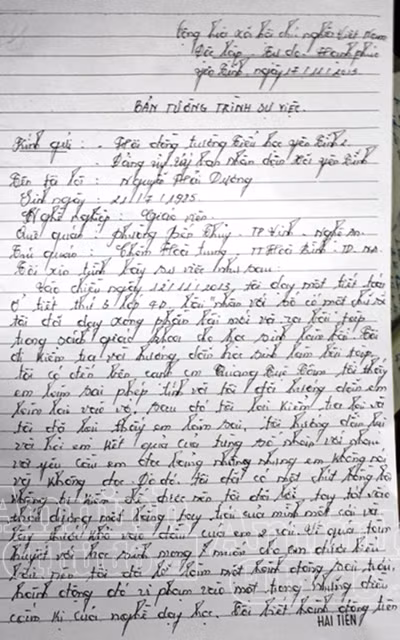 Cộng hòa xã hội chủ nghĩa Việt Nam
Độc lập - Tự do - Hạnh phúc
Yên Định, ngày 17/11/2013
BẢN TƯỜNG TRÌNH SỰ VIỆC
Kính gửi: - Hội đồng trường Tiểu học Yên Định
- Đảng ủy ủy ban nhân dân xã Yên Định
Tên tôi là: Nguyễn Hải Dương
Sinh ngày 21/7/1975
Nghề nghiệp: Giáo viên
Quê quán: Phường Bến Thủy - TP Vinh - Nghệ An
Trú quán:
Tôi xin trình bày sự việc như sau:
Vào chiều ngày 12/11/2013, tôi dạy một tiết toán
ở tiết thứ 3 lớp 4D, bài "nhân với số có một chữ số"
tôi đã dạy xong phần bài mới và ra bài tập
trong sách giáo khoa cho học sinh làm bài. Tôi
đi kiểm tra và hướng dẫn học sinh làm bài tập
tôi có đến bên cạnh em Quang tôi thấy
em làm sai phép tính và tôi đã hướng dẫn em
làm lại vào vở, sau đó tôi lại kiểm tra lại và
tôi đã lại thấy em làm sai, tôi hướng dẫn lại
và hỏi em kết quả của từng số nhân với nhau
và yêu cầu em đọc bảng nhưng em không nói
và không đọc. Do đó tôi đã có một chút nóng
không kiềm chế được nên tôi đã tay tôi vào
một bằng tay trái của mình một cái và
vào đầu của em 2 cái. Vì quá tâm
huyết với học sinh mong muốn cho em được hiểu
bài nên tôi đã làm một hành động sai trái,
hành động đó vi phạm vào một trong những điều
cấm kị của nghề dạy học. Tôi biết hành động trên
HẢI TIẾN